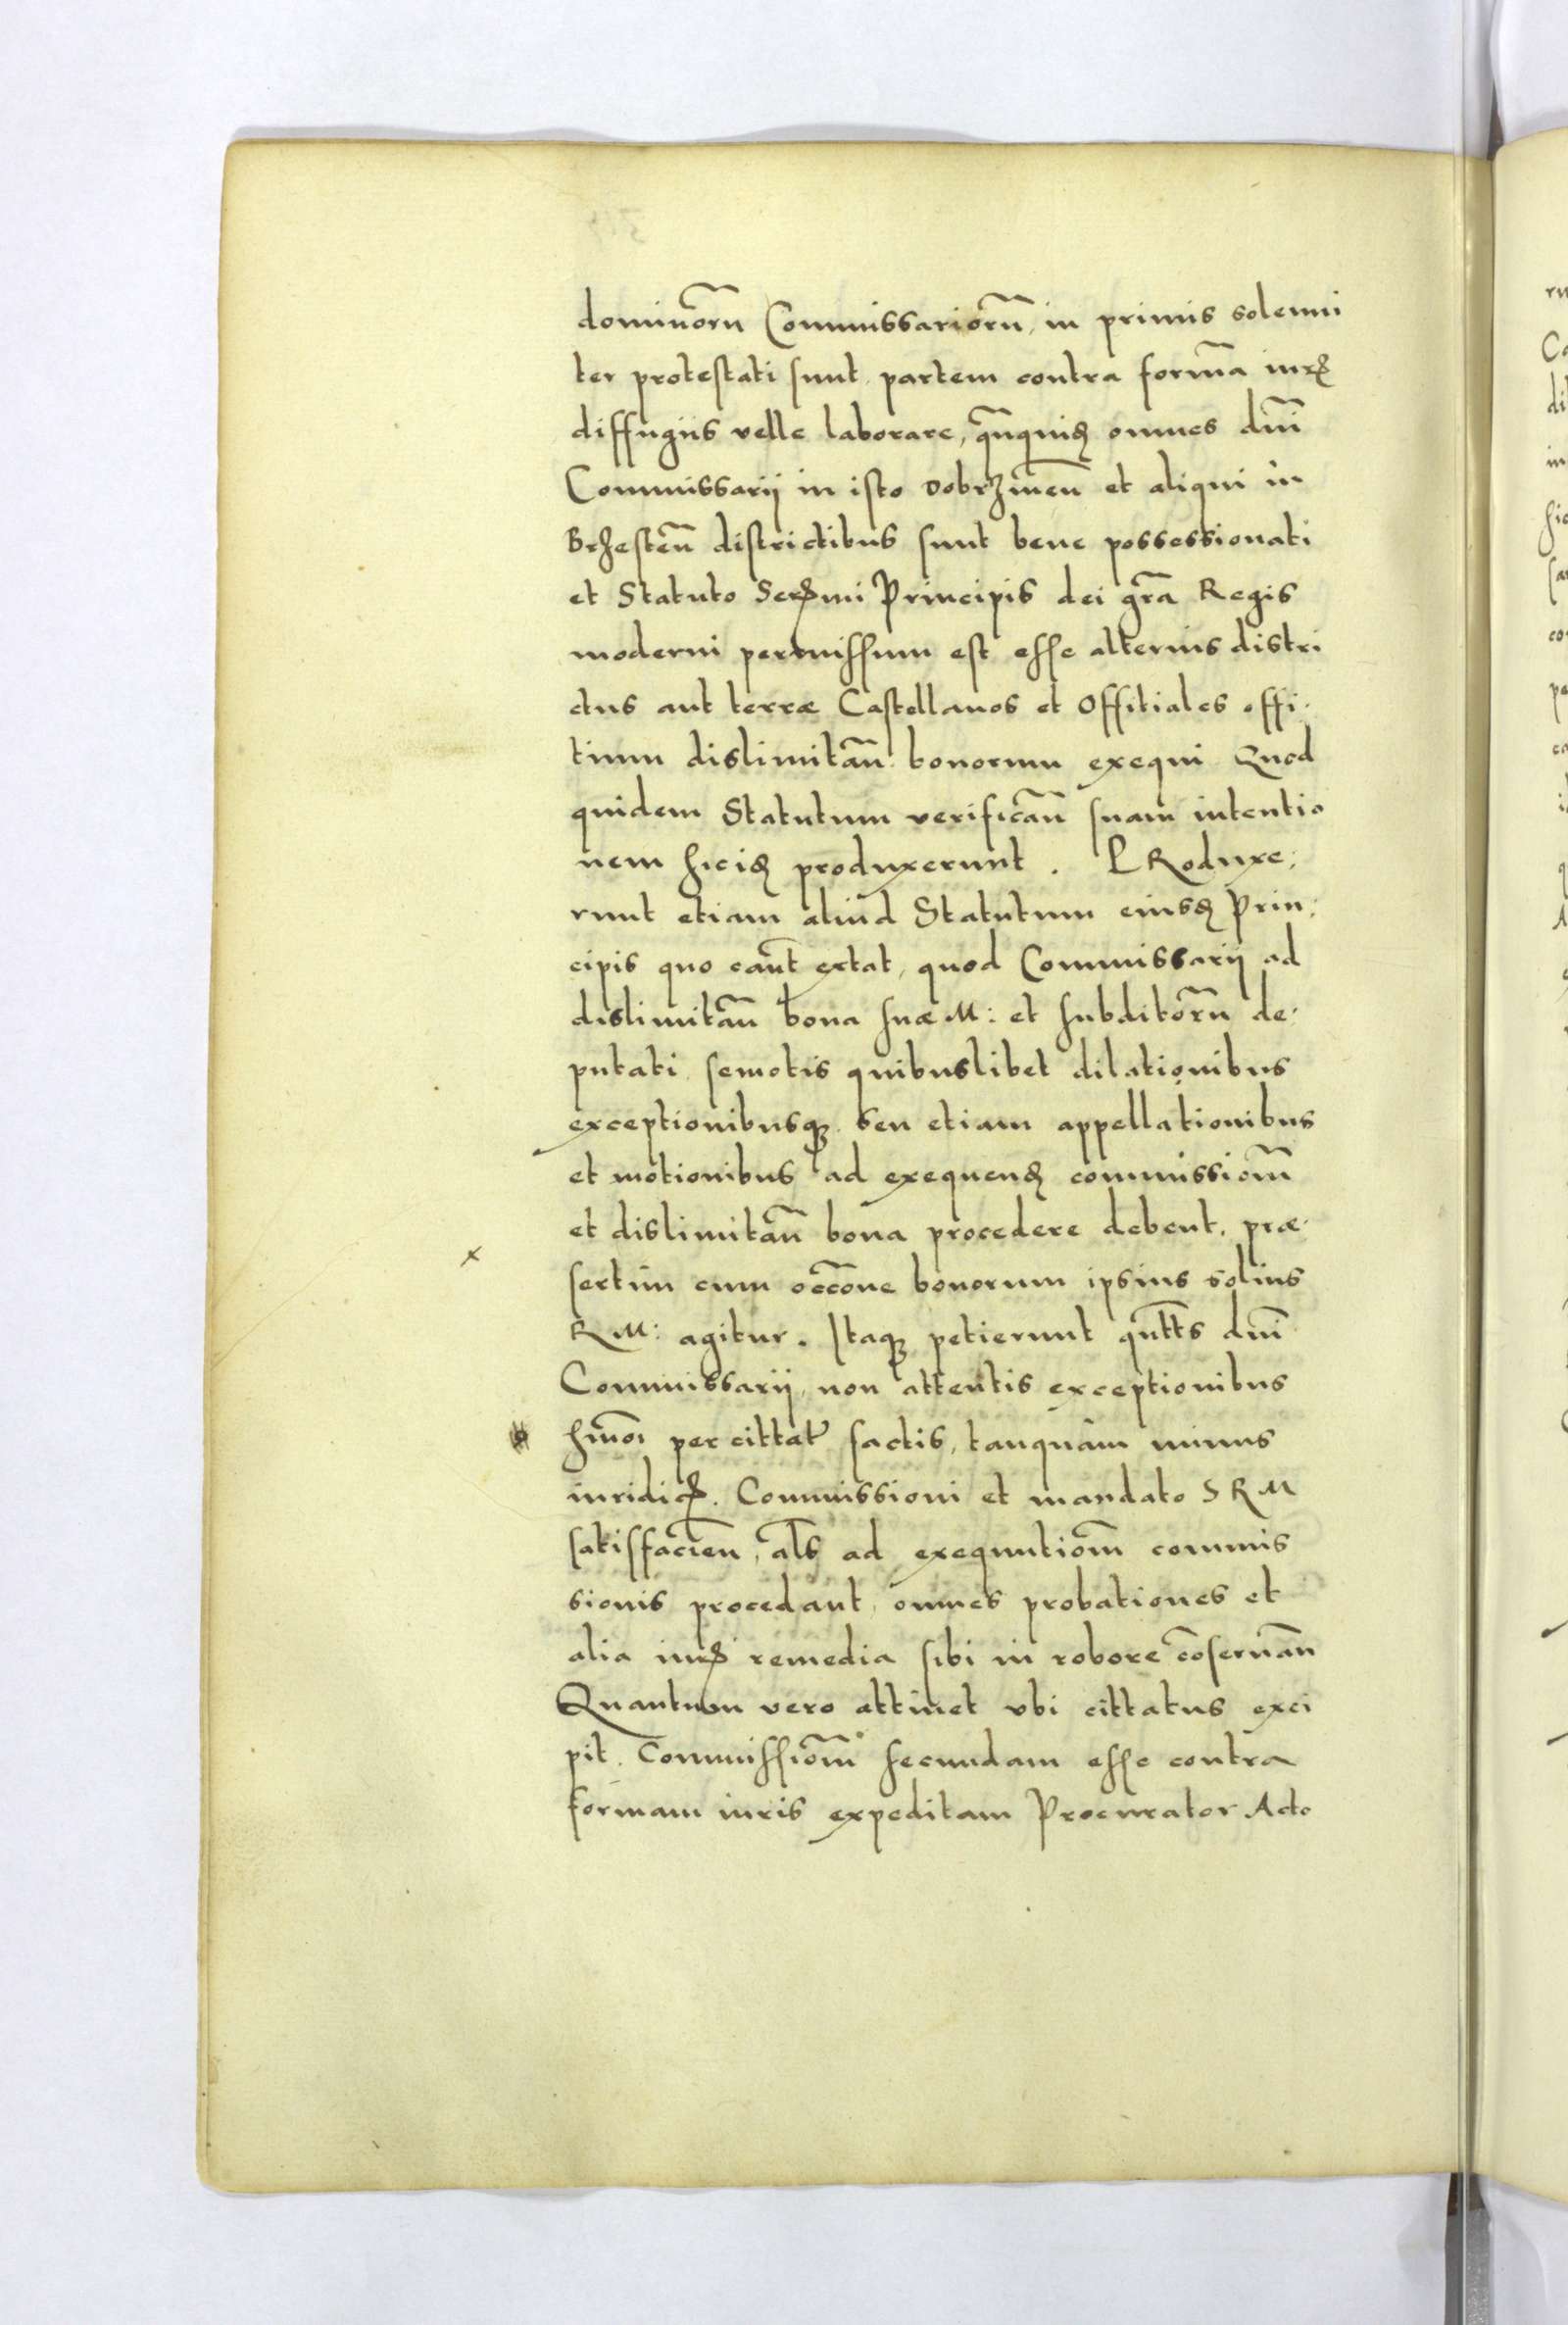 dominoru͞ Commissarioru͞, in primis solemni
ter protestati sunt partem contra forma͞ iurꝭ
diffugiis velle laborare, qu͞nquidꝫ omnes dni͞
Commissarij in isto Dobrzinen͞ et aliqui in
Brzesten͞ districtibus sunt bene possessionati
et Statuto Serꝭmi Principis dei gra͞ Regis
moderni permissum est esse alterius distri
ctus aut terræ Castellanos et Offitiales offi-
tium dislimitan͞ bonorum exequi Quod
quidem Statutum verifican͞ suam intentio
nem hicidꝫ produxerunt . PRoduxe-
runt etiam aliud Statutum eiusdꝫ Prin-
cipis quo caut͞ extat, quod Commissarij ad
dislimitan͞ bona suæ M: et subditoru͞ de-
putati semotis quibuslibet dilationibus
exceptionibusqꝫ seu etiam appellationibus
et motionibus ad exequendꝫ commissiom͞
et dislimitan͞ bona procedere debent. præ-
sertim cum occ͞one bonorum ipsius solius
R M: agitur. Itaqꝫ petierunt qut͞ts dni͞
Commissarij, non attentis exceptionibus
hm͞oi per cittat͞ factis, tanquam minus
iuridicꝭ. Commissioni et mandato S R M
satisfacien͞, als͞ ad exequutiom͞ commis
sionis procedant, omnes probationes et
alia iurꝭ remedia sibi in robore co͞seruan͞
Quantum vero attinet vbi cittatus exci
pit. Commissiom͞ secundam esse contra
formam iuris expeditam Procurator Acto